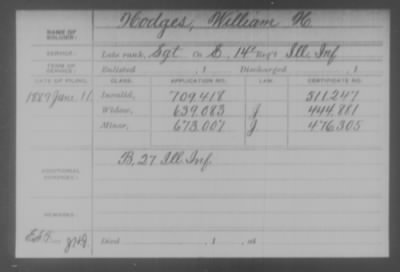 NAME OF SOLDIER: Hodges, William H
SERVICE: Late rank, Sgt Co E, 14" Reg't Ill. Inf
TERM OF SERVICE: Enlisted , 1 Discharged , 1
DATE OF FILING. CLASS. APPLICATION NO. LAW. CERTIFICATE NO.
1889 June 11. Invalid, 709.418 511.247
Widow, 639.083 J 444.881
Minor, 673.007 J 476.305
ADDITIONAL SERVICES:
B, 27 Ill Inf
REMARKS:
Died , 1 , at